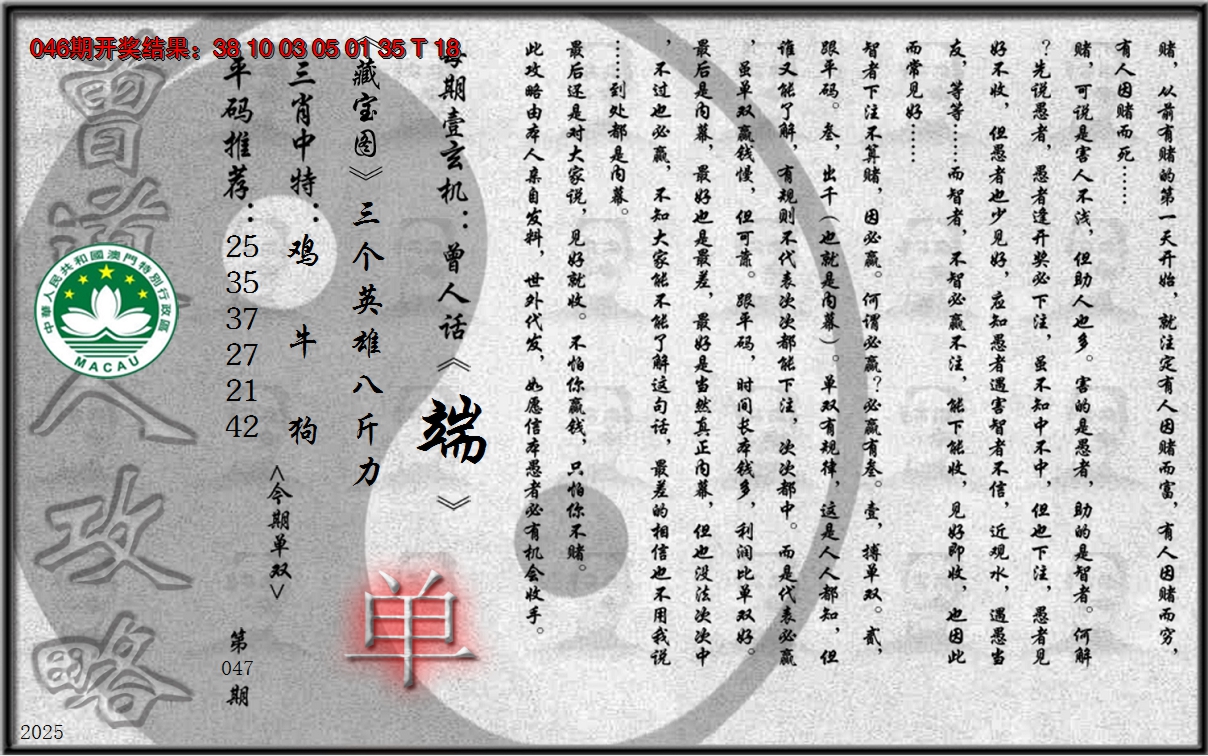 046期开奖结果：38 10 03 05 01 35 T 18
赌，从前有赌的第一天开始，就注定有人因赌而富，有人因赌而穷，
有人因赌而死……
赌，可说是害人不浅，但助人也多。害的是愚者，助的是智者。何解
？先说愚者，愚者逢开奖必下注，虽不知中不中，但也下注，愚者见
好不收，但愚者也少见好，应知愚者遇害智者不信，近观水，遇愚当
友，等等……而智者，不智必赢不注，能下能收，见好即收，也因此
而常见好……
智者下注不算赌，因必赢。何谓必赢？必赢有叁。壹，搏单双。贰，
跟平码。叁，出千（也就是内幕）。单双有规律，这是人人都知，但
谁又能了解，有规则不代表次次都能下注，次次都中。而是代表必赢
，虽单双赢钱慢，但可靠。跟平码，时间长本钱多，利润比单双好。
最后是内幕，最好也是最差，最好是当然真正内幕，但也没法次次中
，不过也必赢，不知大家能不能了解这句话，最差的相信也不用我说
……到处都是内幕。
最后还是对大家说，见好就收。不怕你赢钱，只怕你不赌。
此攻略由本人亲自发料，世外代发，如愿信本愚者必有机会收手。
每期壹玄机：曾人话《端》
《藏宝图》三个英雄八斤力
三肖中特：鸡 牛 狗
<今期单双>
单
平码推荐：25 35 37 27 21 42
第047期
曾道人攻略
中華人民共和國澳門特別行政區
MACAU
2025